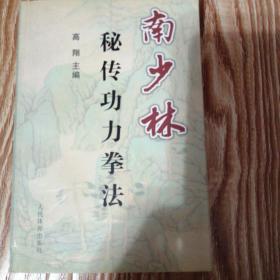 南少林
秘传功力拳法
高翔 主编
人民体育出版社